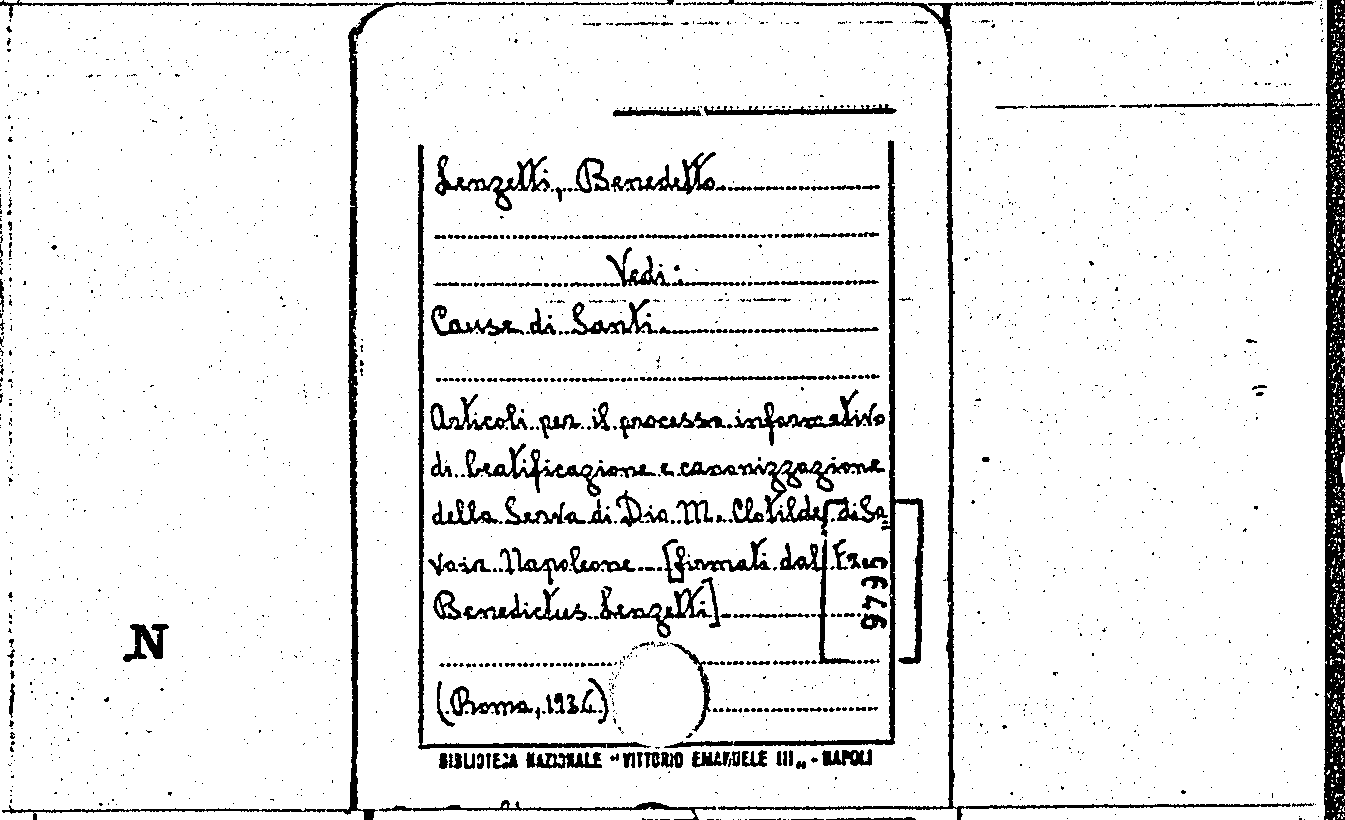 Lenzetti, Benedetto
Vedi:
Cause di Santi.
Articoli per il processo informativo
di beatificazione e canonizzazione
della Serva di Dio M. Clotilde di Sa=
voia Napoleone [firmati dal
Benedictus Lenzetti]
9793
(Roma, 1936)
N
BIBLIOTECA NAZIONALE "VITTORIO EMANUELE III„ - NAPOLI